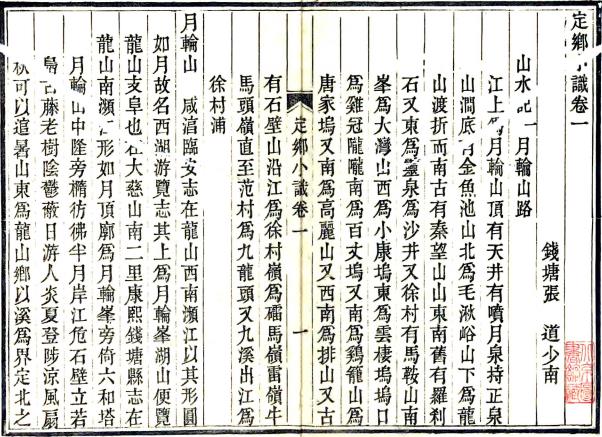 定鄉小識卷一
錢塘張 道少南
山水記一 月輪山路
江上爲月輪山頂有天井有噴月泉持正泉
山澗底有金魚池山北爲毛湫峪山下爲龍
山渡折而南古有秦望山山東南舊有羅刹
石又東爲靈泉爲沙井又徐村有馬鞍山南
峯爲大灣山西爲小康塢東爲雲棲塢塢口
爲雞冠隴隴南爲百丈塢又南爲鷄籠山爲
唐家塢又南爲高麗山又西南爲排山又古
定鄉小識卷一 一
有石壁山沿江爲徐村嶺爲礌馬嶺雷嶺牛
馬頭嶺直至范村爲九龍頭又九溪出江爲
徐村浦
月輪山 咸淳臨安志在龍山西南瀕江以其形圓
如月故名西湖遊覽志其上爲月輪峯湖山便覽
龍山支阜也在大慈山南二里康熙錢塘縣志在
龍山南瀕江形如月頂廓爲月輪峯旁倚六和塔
月輪山中隆旁橢彷彿半月岸江危石壁立若
古藤老樹陰鬱蔽日游人炎夏登陟涼風扇
秋可以逭暑山東爲龍山鄉以溪爲界定北之